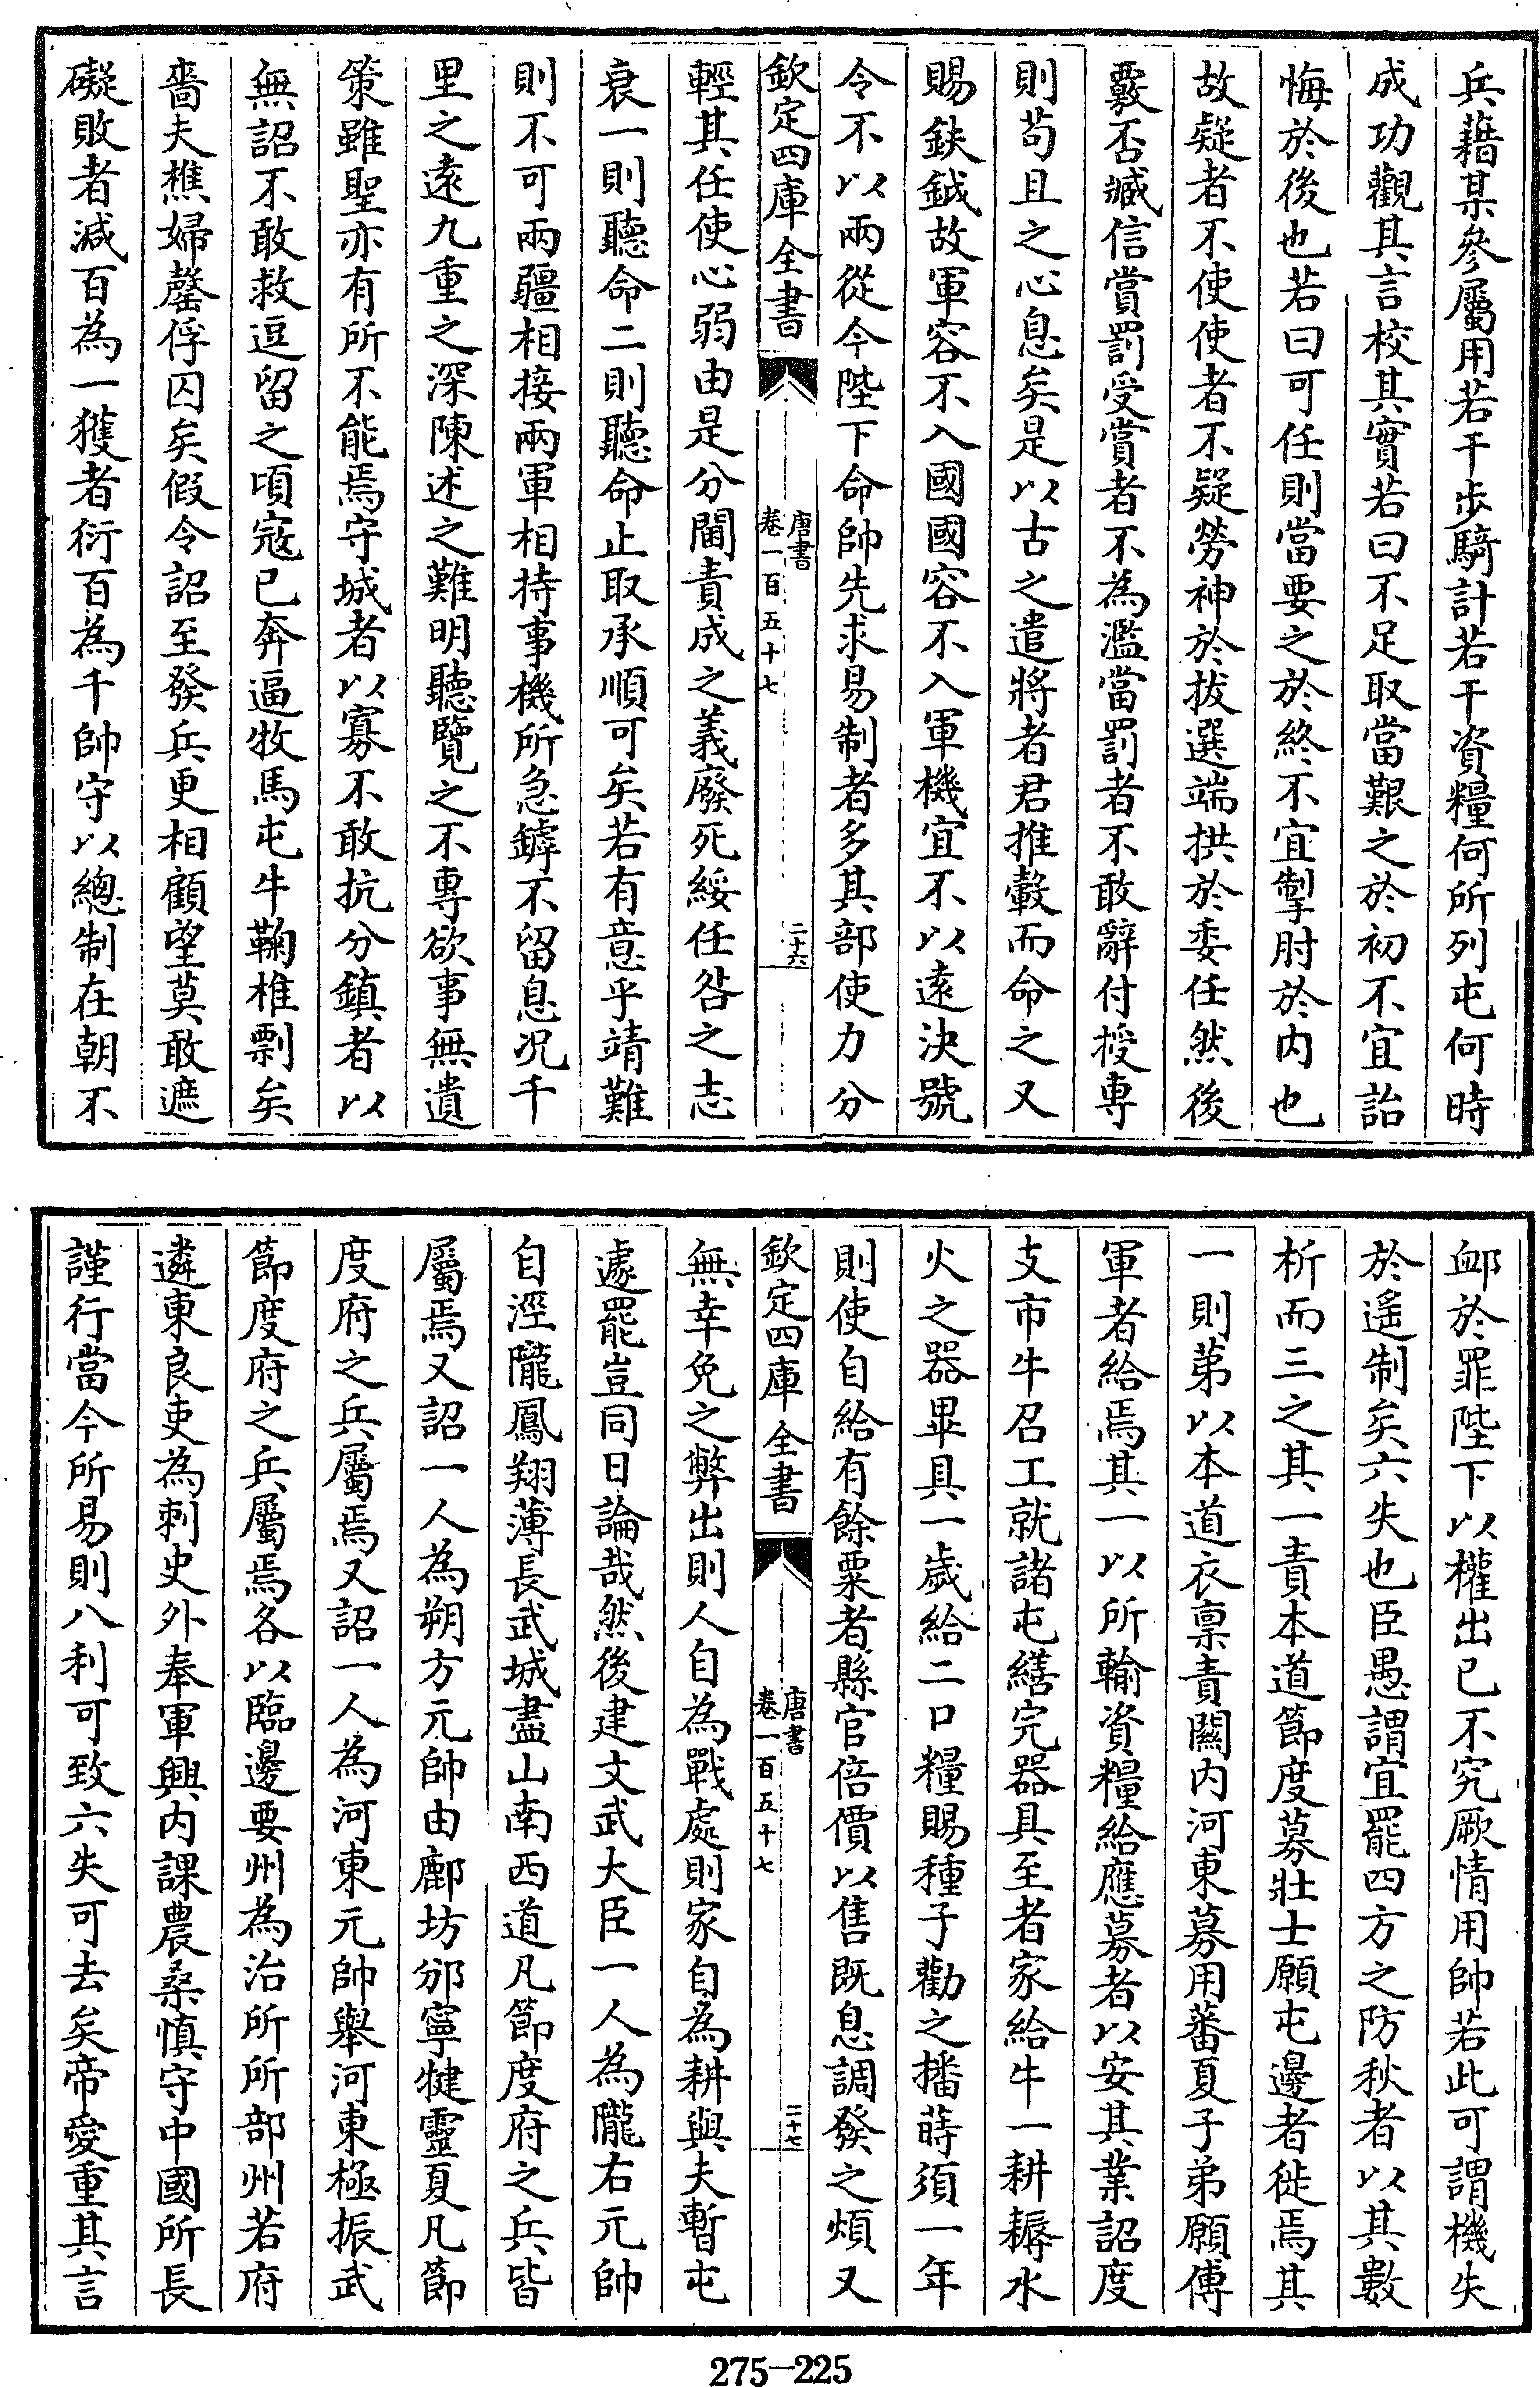 兵藉某參屬用若干步騎計若干資糧何所列屯何時
成功觀其言校其實若曰不足取當艱之於初不宜詒
悔於後也若曰可任則當要之於終不宜掣肘於内也
故疑者不使使者不疑勞神於拔選端拱於委任然後
覈否臧信賞罰受賞者不為濫當罰者不敢辭付授專
則苟且之心息矣是以古之遣將者君推轂而命之又
賜鈇鉞故軍容不入國國容不入軍機宜不以遠決號
令不以兩從今陛下命帥先求易制者多其部使力分
欽定四庫全書
唐書
卷一百五十七
二十六
輕其任使心弱由是分閫責成之義廢死綏任咎之志
衰一則聽命二則聽命止取承順可矣若有意乎靖難
則不可兩疆相接兩軍相持事機所急罅不留息况千
里之遠九重之深陳述之難明聽覽之不專欲事無遺
策雖聖亦有所不能焉守城者以寡不敢抗分鎮者以
無詔不敢救逗留之頃寇已奔逼牧馬屯牛鞠椎剽矣
嗇夫樵婦罄俘囚矣假令詔至發兵更相顧望莫敢遮
礙敗者減百為一獲者衍百為千帥守以總制在朝不
䘏於罪陛下以權出已不究厥情用帥若此可謂機失
於遙制矣六失也臣愚謂宜罷四方之防秋者以其數
析而三之其一責本道節度募壯士願屯邊者徙焉其
一則第以本道衣稟責關内河東募用蕃夏子弟願傅
軍者給焉其一以所輸資糧給應募者以安其業詔度
支市牛召工就諸屯繕完器具至者家給牛一耕耨水
火之器畢具一歲給二口糧賜種子勸之播蒔須一年
則使自給有餘粟者縣官倍價以售既息調發之煩又
欽定四庫全書
唐書
卷一百五十七
二十七
無幸免之弊出則人自為戰處則家自為耕與夫暫屯
遽罷豈同日論哉然後建文武大臣一人為隴右元帥
自涇隴鳳翔薄長武城盡山南西道凡節度府之兵皆
屬焉又詔一人為朔方元帥由鄜坊邠寧犍靈夏凡節
度府之兵屬焉又詔一人為河東元帥舉河東極振武
節度府之兵屬焉各以臨邊要州為治所所部州若府
遴柬良吏為刺史外奉軍興内課農桑慎守中國所長
謹行當今所易則八利可致六失可去矣帝愛重其言
275-225